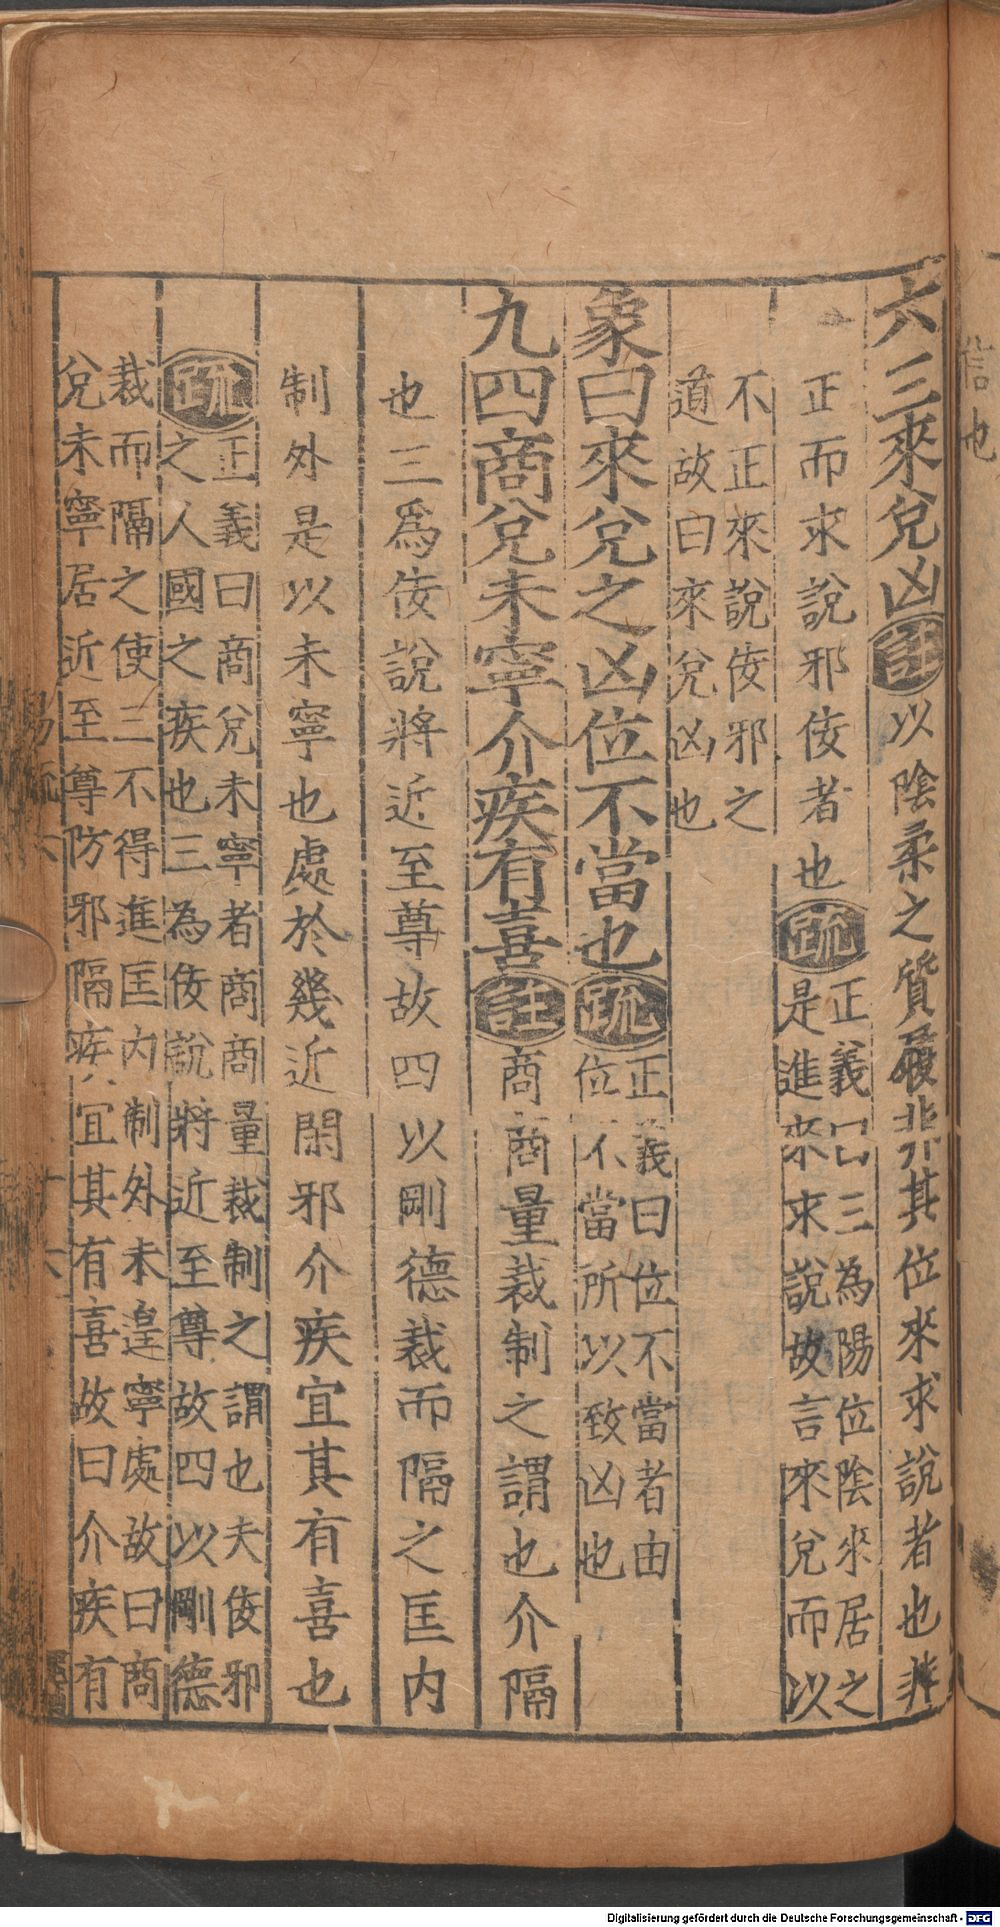 六三來兌凶註以陰柔之質履非其位來求說者也非
正而求說邪佞者也疏正義曰三為陽位陰來居之
是進來求說故言來兌而以
不正來說佞邪之
道故曰來兌凶也
象曰來兌之凶位不當也疏正義曰位不當者由
位不當所以致凶也
九四商兌未寧介疾有喜註商商量裁制之謂也介隔
也三爲佞說將近至尊故四以剛德裁而隔之匡内
制外是以未寧也處於幾近閑邪介疾宜其有喜也
疏正義曰商兌未寧者商商量裁制之謂也夫佞邪
之人國之疾也三為佞說將近至尊故四以剛德
裁而隔之使三不得進匡内制外未遑寧處故曰商
兌未寧居近至尊防邪隔疾宜其有喜故曰介疾有
信也
Digitalisierung gefördert durch die Deutsche Forschungsgemeinschaft - DFG